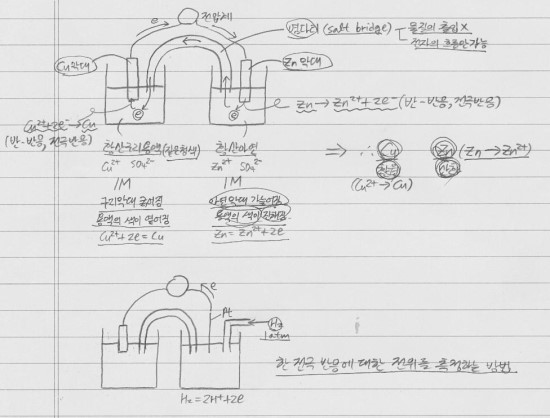 e
전압계
염다리 (salt bridge)
물질의 출입 X
전자의 흐름만 가능
Cu막대
Zn 막대
e
e
Cu²⁺+2e⁻→Cu
(반-반응, 전극반응)
Zn → Zn²⁺+2e⁻ (반-반응, 전극반응)
황산구리용액
Cu²⁺ SO₄²⁻
1M
구리막대 굵어짐
용액의 색이 옅어짐
Cu²⁺+2e = Cu
황산아연
Zn²⁺ SO₄²⁻
1M
아연막대 가늘어짐
용액의 색이
Zn = Zn²⁺+2e
⇒ ∴ Cu
환원
(Cu²⁺→Cu)
Zn (Zn→Zn²⁺)
산화
e
Pt
H₂
1atm
H₂ = 2H⁺+2e
한 전극 반응에 대한 전위를 측정하는 방법.